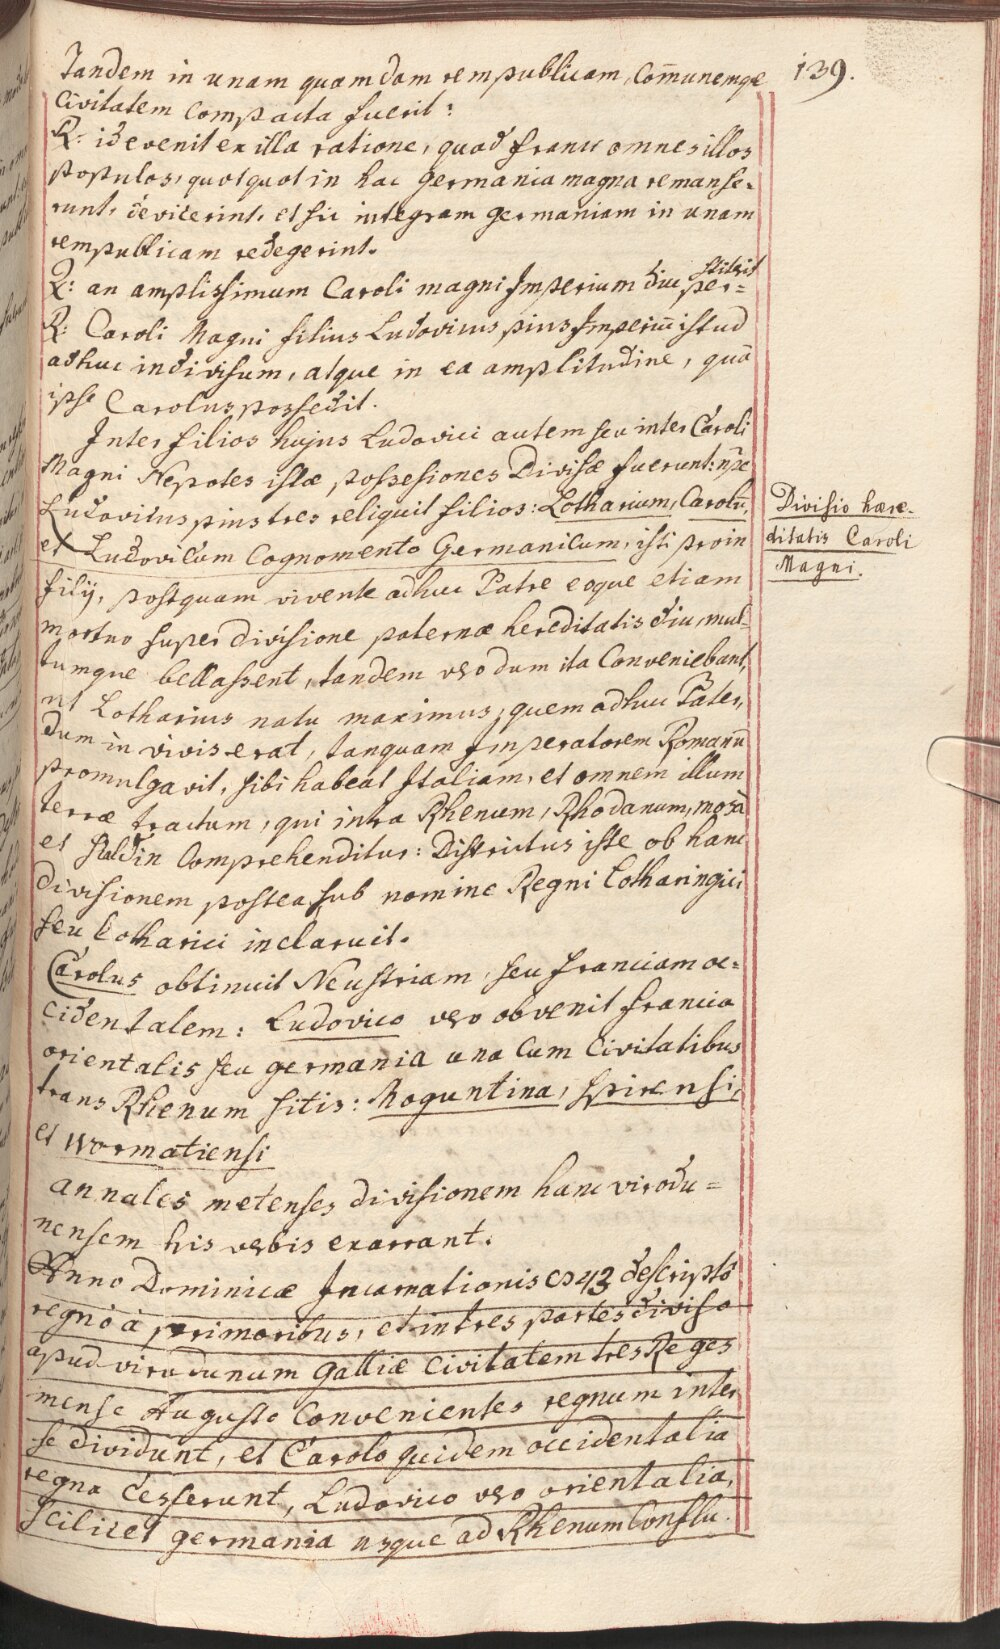 139.
Tandem in unam quamdam rempublicam, Com̄unemqe
Civitatem Compacta fuerit?
R: id evenit ex illa ratione, quod franci omnes illos
populos, quotquot in hac Germania magna remanse-
runt, devicerint, et sic integram Germaniam in unam
rempublicam redegerint.
Q: an amplissimum Caroli magni Imperium diu per-
stiterit
R: Caroli Magni filius Ludovicus pius Imperiū istud
adhuc indivisum, atque in ea amplitudine, quā
ipse Carolus possedit.
Inter filios hujus Ludovici autem seu inter Caroli
Magni Nepotes istæ possesiones Divisæ fuerunt: n̄pe
Ludovicus pius tres reliquit filios: Lotharium, Carolū,
et Ludovicum Cognomento Germanicum, isti proin
filij, postquam vivente adhuc Patre eoque etiam
mortuo super divisione paternæ hereditatis diu, mul-
tumque bellassent, tandem vero dum ita Conveniebant,
ut Lotharius natu maximus, quem adhuc Pater,
dum in vivis erat, tanquam Imperatorem Romanū
promulgavit, sibi habeat Italiam, et omnem illum
terræ tractum, qui intra Rhenum, Rhodanum, mosā
et Scaldin Comprehenditur: Districtus iste ob hanc
divisionem postea sub nomine Regni Lotharingici
seu Lotharici inclaruit.
Carolus obtinuit Neustriam, seu franciam oc-
cidentalem: Ludovico vero obvenit francia
orientalis seu germania una Cum Civitatibus
trans Rhenum sitis: Moguntina, Spirensi,
et Wormatiensi
annales metenses divisionem hanc virodu=
nensem his verbis exarrant.
Anno Dominicæ Incarnationis 843 descripto
regno à primoribus, et in tres partes diviso
apud virudunum Galliæ Civitatem tres Reges
mense Augusto Convenientes regnum inter
se dividunt, et Carolo quidem occidentalia
regna cesserunt, Ludovico vero orientalia,
Scilicet germania usque ad Rhenum Conflu-
Divisio hære-
ditatis Caroli
Magni.